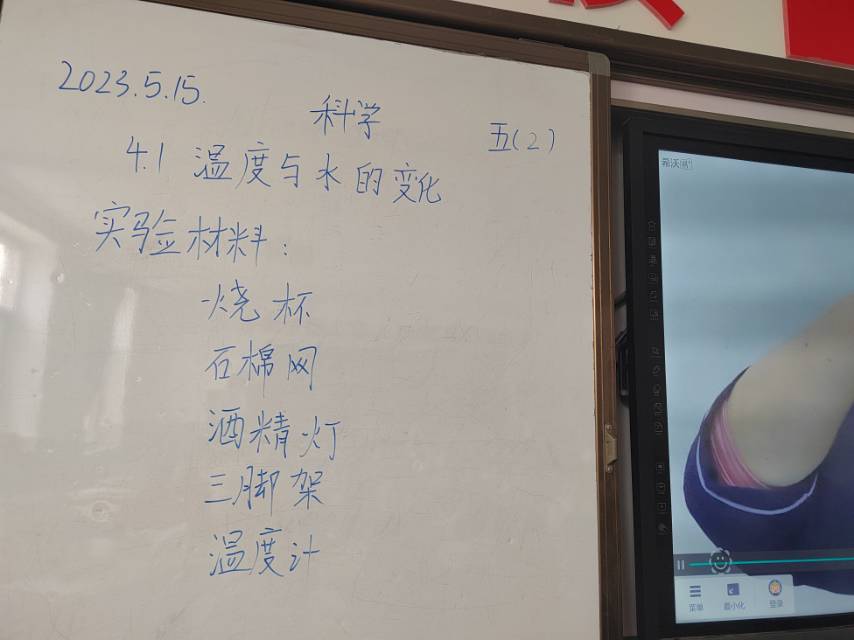 2023.5.15.
科学
五(2)
4.1 温度与水的变化
实验材料:
烧杯
石棉网
酒精灯
三脚架
温度计
希沃
菜单
最小化
登录